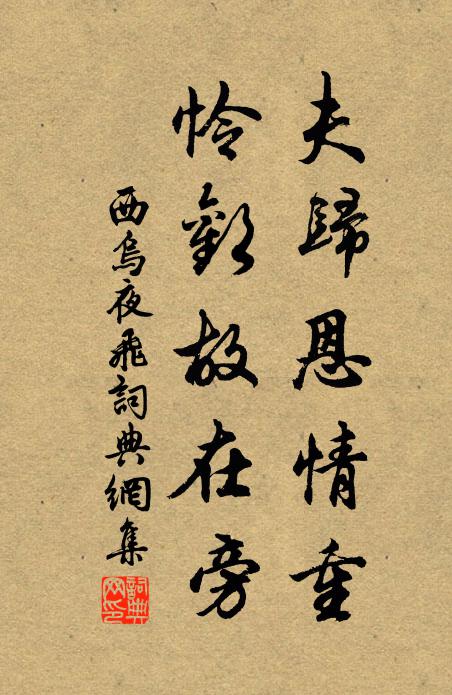 夫歸恩情重
憐歡故在旁
西烏夜飛詞典網集
詞典網印